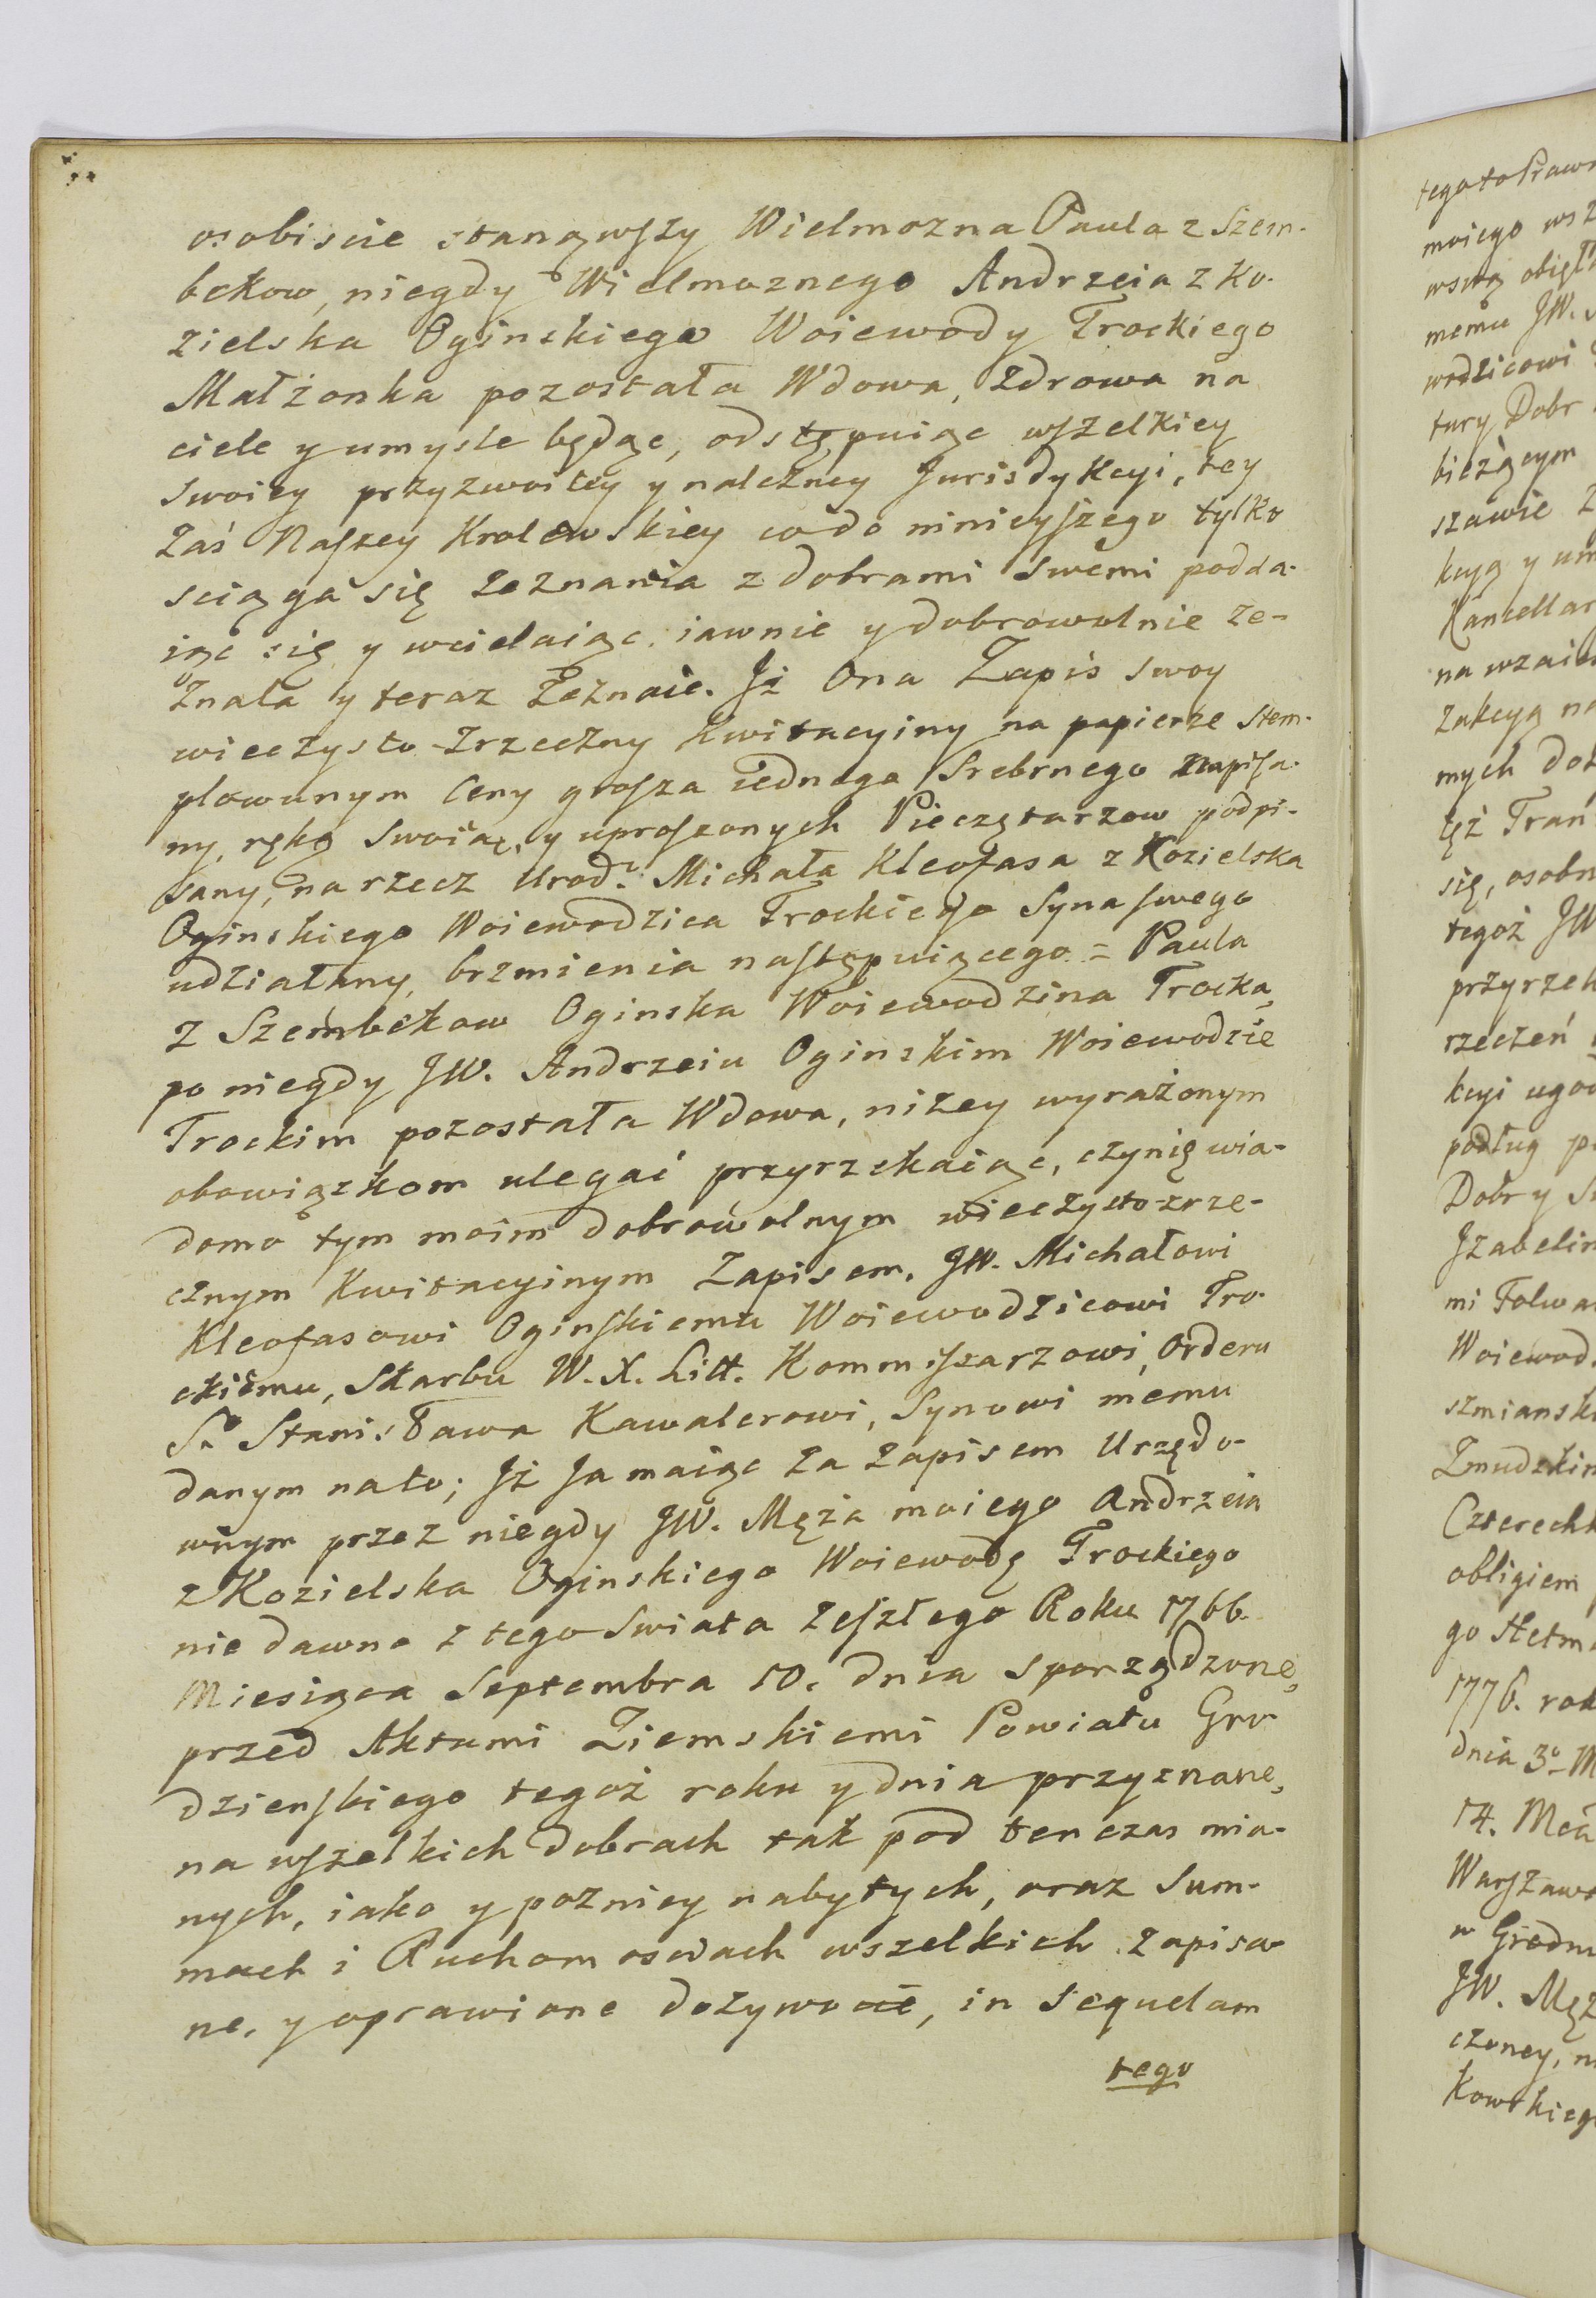 osobiscie stanąwszy Wielmozna Paula z Szem-
bekow, niegdy Wielmoznego Andrzeia z Ko-
zielska Oginskiego Woiewody Trockiego
Małżonka pozostała Wdowa, zdrowa na
ciele y umysle będąc, odstępuiąc wszelkiey
swoiey przyzwoitey y należney Jurisdykcyi, tey
zaś Naszey Krolewskiey co do ninieyszego tylko
sciąga się zeznania z dobrami swemi podda-
iąc się y wcielaiąc, iawnie y dobrowolnie ze-
znała y teraz Zeznaie. Jż Ona Zapis swoy
wieczysto-zrzeczny Kwitacyiny na papierze stem-
plowanym Ceny grosza iednego Srebrnego napisa-
ny, ręką swoią, y uproszonych Pieczętarzow podpi-
sany, na rzecz Urod: Michała Kleofasa z Kozielska
Oginskiego Woiewodzica Trockiego Syna swego
udziałany, brzmienia następuiącego = Paula
z Szembekow Oginska Woiewodzina Trocka,
po niegdy JW. Andrzeiu Oginskim Woiewodzie
Trockim pozostała Wdowa, niżey wyrażonym
obowiązkom ulegać przyrzekaiąc, czynię wia-
domo tym moim dobrowolnym wieczysto-zrze-
cznym Kwitacyinym Zapisem, JW. Michałowi
Kleofasowi Oginskiemu Woiewodzicowi Tro-
ckiemu, Skarbu W. X. Litt. Kommiszarzowi, Orderu
S.o Stanisława Kawalerowi, Synowi memu
danym na to; Jż Ja maiąc za zapisem Urzędo-
wnym przez niegdy JW. Męża moiego Andrzeia
z Kozielska Oginskiego Woiewodę Trockiego
nie dawno z tego Swiata zeszłego Roku 1766.
Miesiąca Septembra 10. dnia sporządzone,
przed Aktami Ziemskiemi Powiatu Gro-
dzienskiego tegoż roku y dnia przyznane,
na wszelkich dobrach tak pod ten czas mia-
nych, iako y pozniey nabytych, oraz Sum-
mach i Ruchomosciach wszelkich zapisa-
ne, y oprawione dozywocie, in sequelam
tego
tego to Prawn
moiego wsz
memu JW.
wodzicowi
tury Dobr
bieżącym
szawie
kcyą y um
Kancellar
na wzaie
zakcyą na
mych do
też Tran
się, osobn
tegoż JW
przyrzek
rzeczeń
kcyi ugod
podług p
Dobr y S
Jzabelin
mi Folwa
Woiewod.
szmiansk
Zmudzkim
Czterech
obligiem
go Hetm
1776. rok
dnia 3.o M
14. Mca
Warszaw
w Grodn
JW. Męż
czoney, n
kowskieg